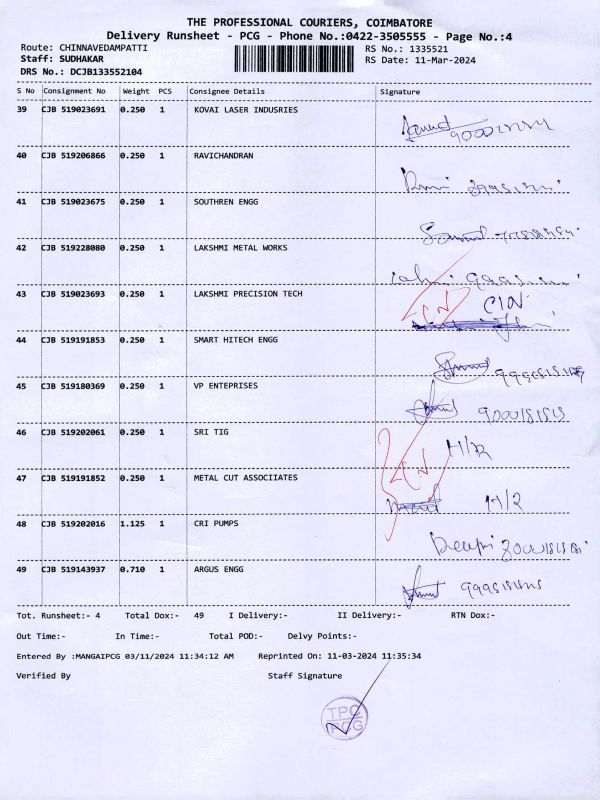 THE PROFESSIONAL COURIERS, COIMBATORE
Delivery Runsheet - PCG - Phone No.:0422-3505555 - Page No.:4
Route: CHINNAVEDAMPATTI RS No.: 1335521
Staff: SUDHAKAR RS Date: 11-Mar-2024
DRS No.: DCJB133552104
S No Consignment No Weight PCS Consignee Details Signature
39 CJB 519023691 0.250 1 KOVAI LASER INDUSRIES
40 CJB 519206866 0.250 1 RAVICHANDRAN
41 CJB 519023675 0.250 1 SOUTHREN ENGG
42 CJB 519228080 0.250 1 LAKSHMI METAL WORKS
43 CJB 519023693 0.250 1 LAKSHMI PRECISION TECH CIN
44 CJB 519191853 0.250 1 SMART HITECH ENGG
45 CJB 519180369 0.250 1 VP ENTEPRISES
46 CJB 519202061 0.250 1 SRI TIG
47 CJB 519191852 0.250 1 METAL CUT ASSOCIIATES
48 CJB 519202016 1.125 1 CRI PUMPS
49 CJB 519143937 0.710 1 ARGUS ENGG
Tot. Runsheet:- 4 Total Dox:- 49 I Delivery:- II Delivery:- RTN Dox:-
Out Time:- In Time:- Total POD:- Delvy Points:-
Entered By :MANGAIPCG 03/11/2024 11:34:12 AM Reprinted On: 11-03-2024 11:35:34
Verified By Staff Signature
TPC
PCG